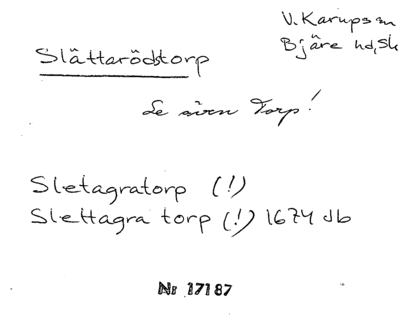 V. Karups sn
Bjäre hd, Sk
Slättarödstorp
Se även Torp!
Sletagratorp (!)
Slettagra torp (!) 1674 Jb
Nr 17187